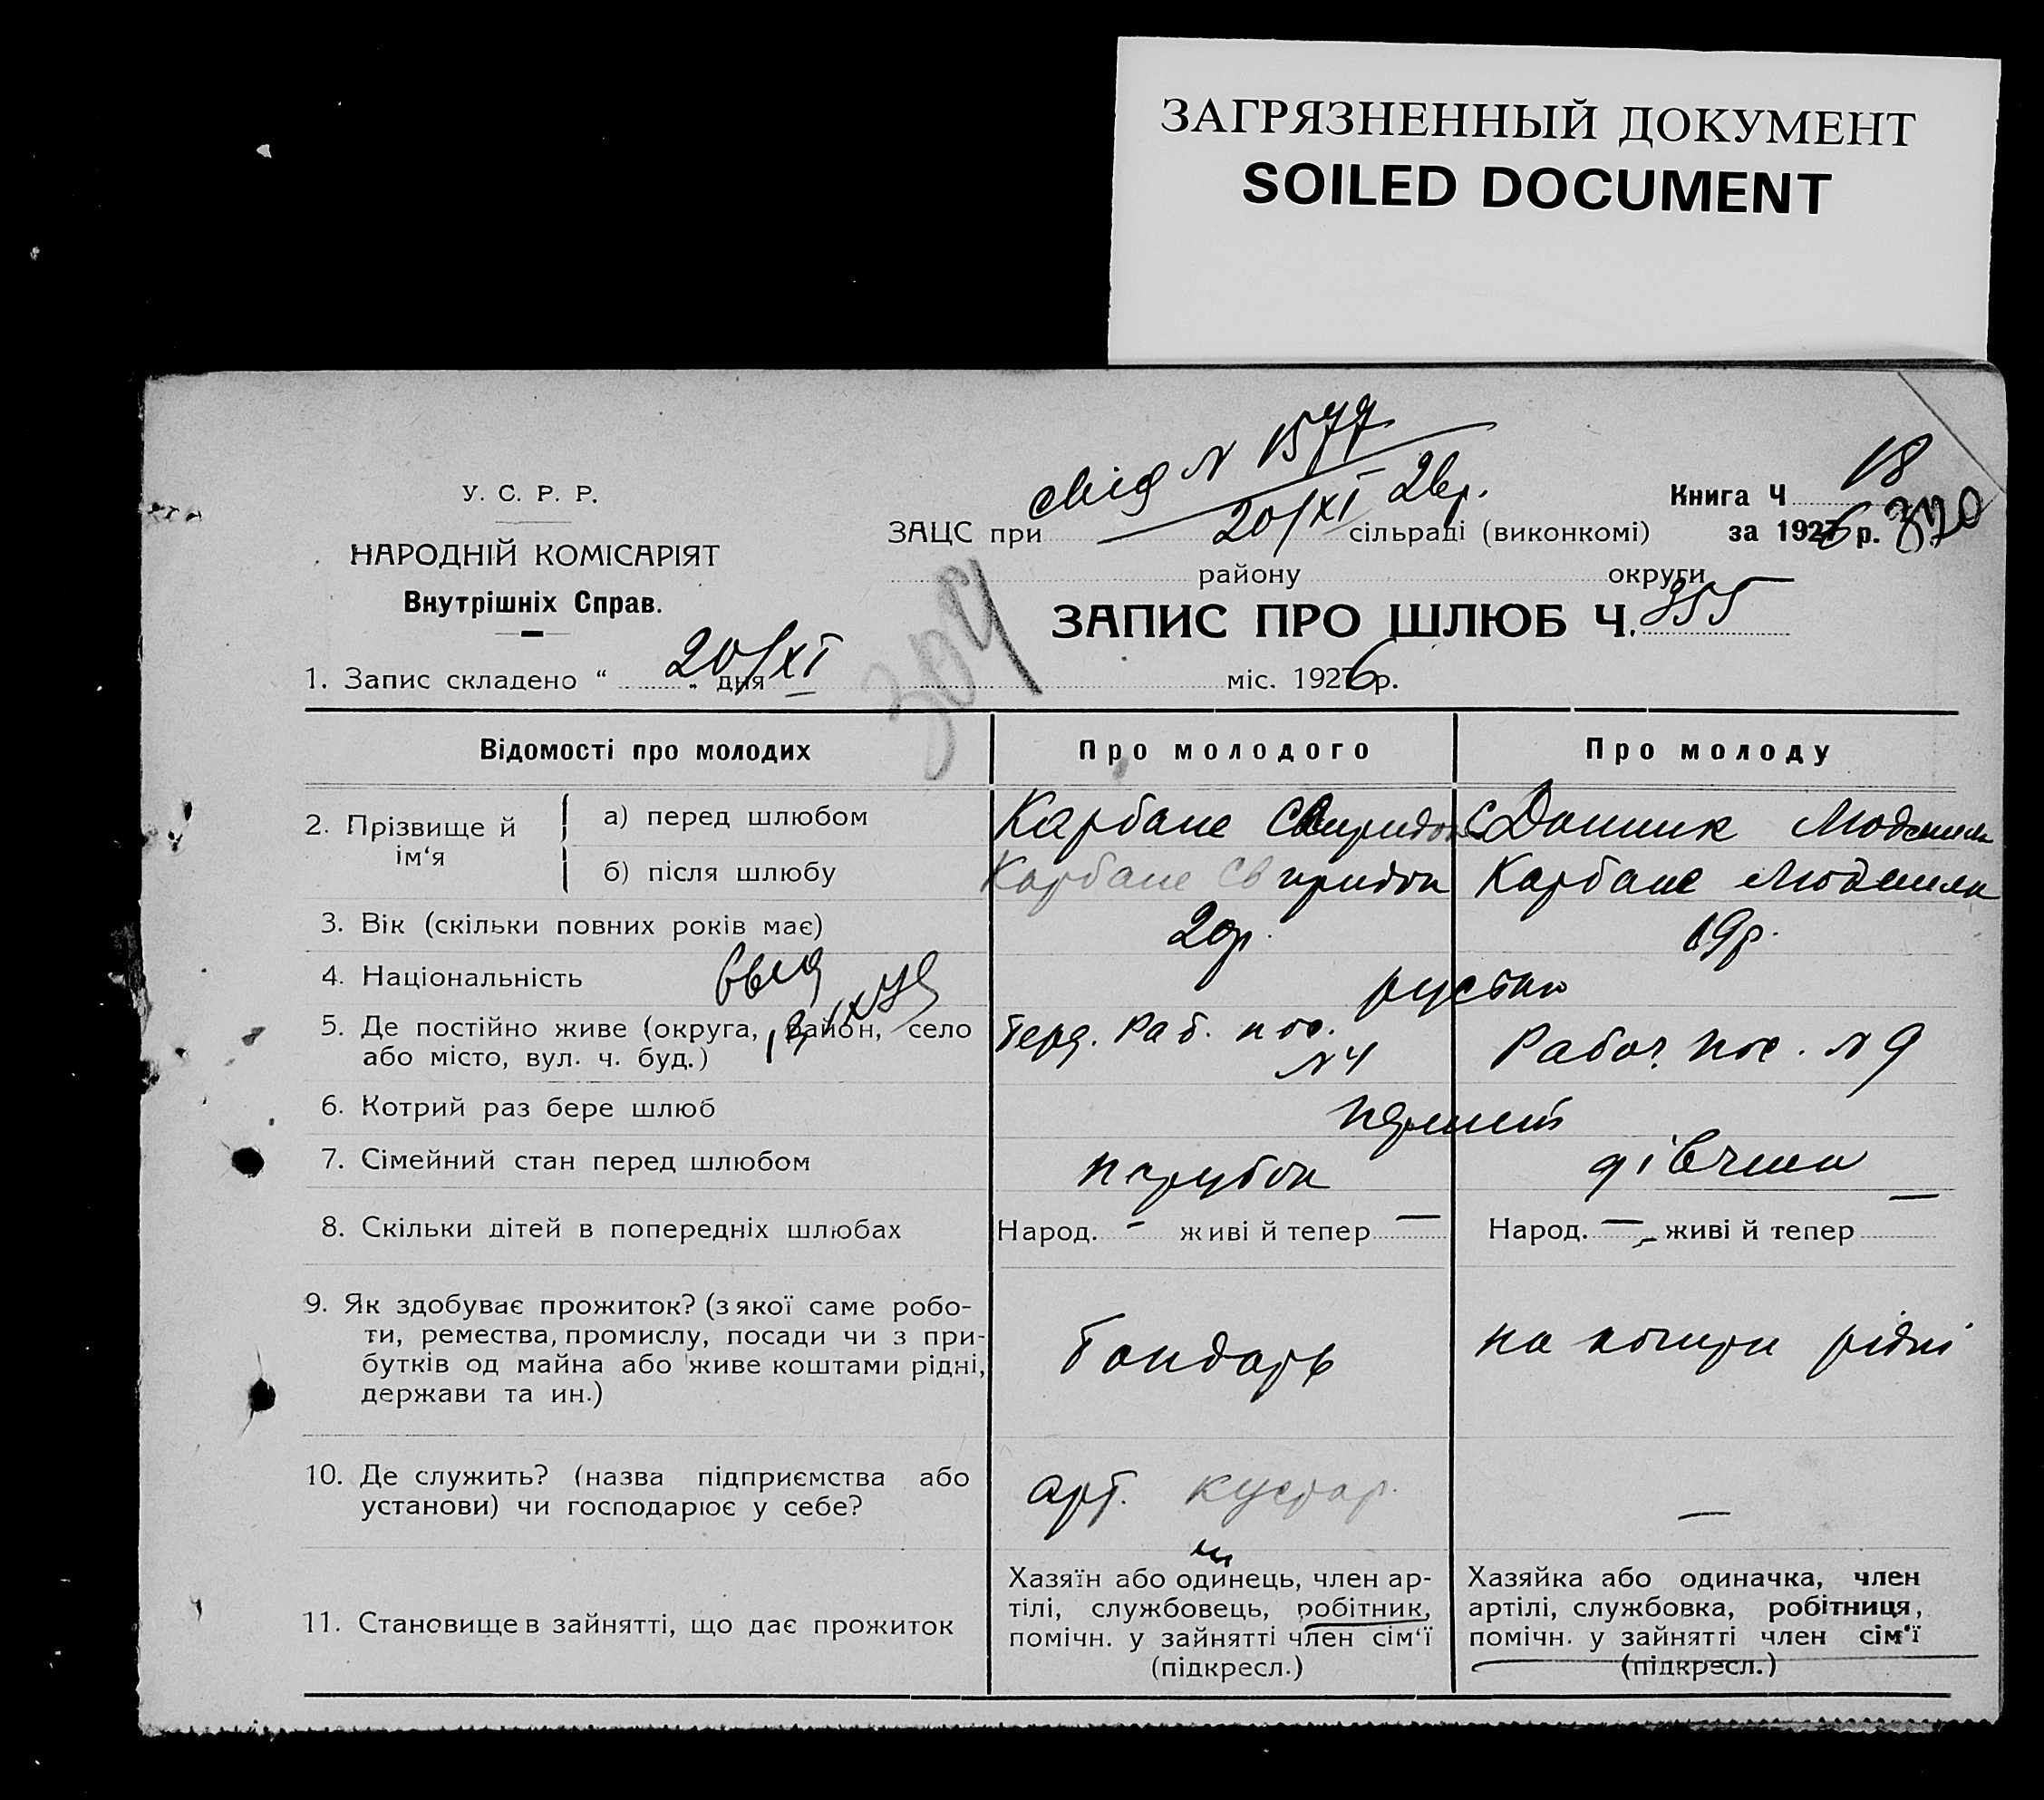 ЗАГРЯЗНЕННЫЙ ДОКУМЕНТ
SOILED DOCUMENT
свід N 1577
20/XI 26р.
У. С. Р. Р.
НАРОДНІЙ КОМІСАРІЯТ
Внутрішніх Справ.
Книга Ч 18
ЗАЦС при сільраді (виконкомі) за 1926 р. 320
району округи
ЗАПИС ПРО ШЛЮБ Ч. 355
304
1. Запис складено “ 20/XI „ дня міс. 1926 р.
Відомості про молодих Про молодого Про молоду
2. Прізвище й ім‘я
а) перед шлюбом Карбане Свиридон Донник Людмила
б) після шлюбу Карбане Свиридон Карбане Людмила
3. Вік (скільки повних років має) 20р. 19р.
4. Національність
5. Де постійно живе (округа, район, село
або місто, вул. ч. буд.)
Раб. пос. N 4 Рабоч. пос. N 9
6. Котрий раз бере шлюб
7. Сімейний стан перед шлюбом парубок дівчина
8. Скільки дітей в попередніх шлюбах Народ. – живі й тепер — Народ. — живі й тепер —
9. Як здобуває прожиток? (з якої саме робо-
ти, ремества, промислу, посади чи з при-
бутків од майна або живе коштами рідні,
держави та ин.)
Бондарь на кошти рідні
10. Де служить? (назва підприємства або
установи) чи господарює у себе?
арт. кустар. —
11. Становище в зайнятті, що дає прожиток
Хазяїн або одинець, член ар-
тілі, службовець, робітник,
помічн. у зайнятті член сім‘ї
(підкресл.)
Хазяйка або одиначка, член
артілі, службовка, робітниця,
помічн. у зайнятті член сім‘ї
(підкресл.)